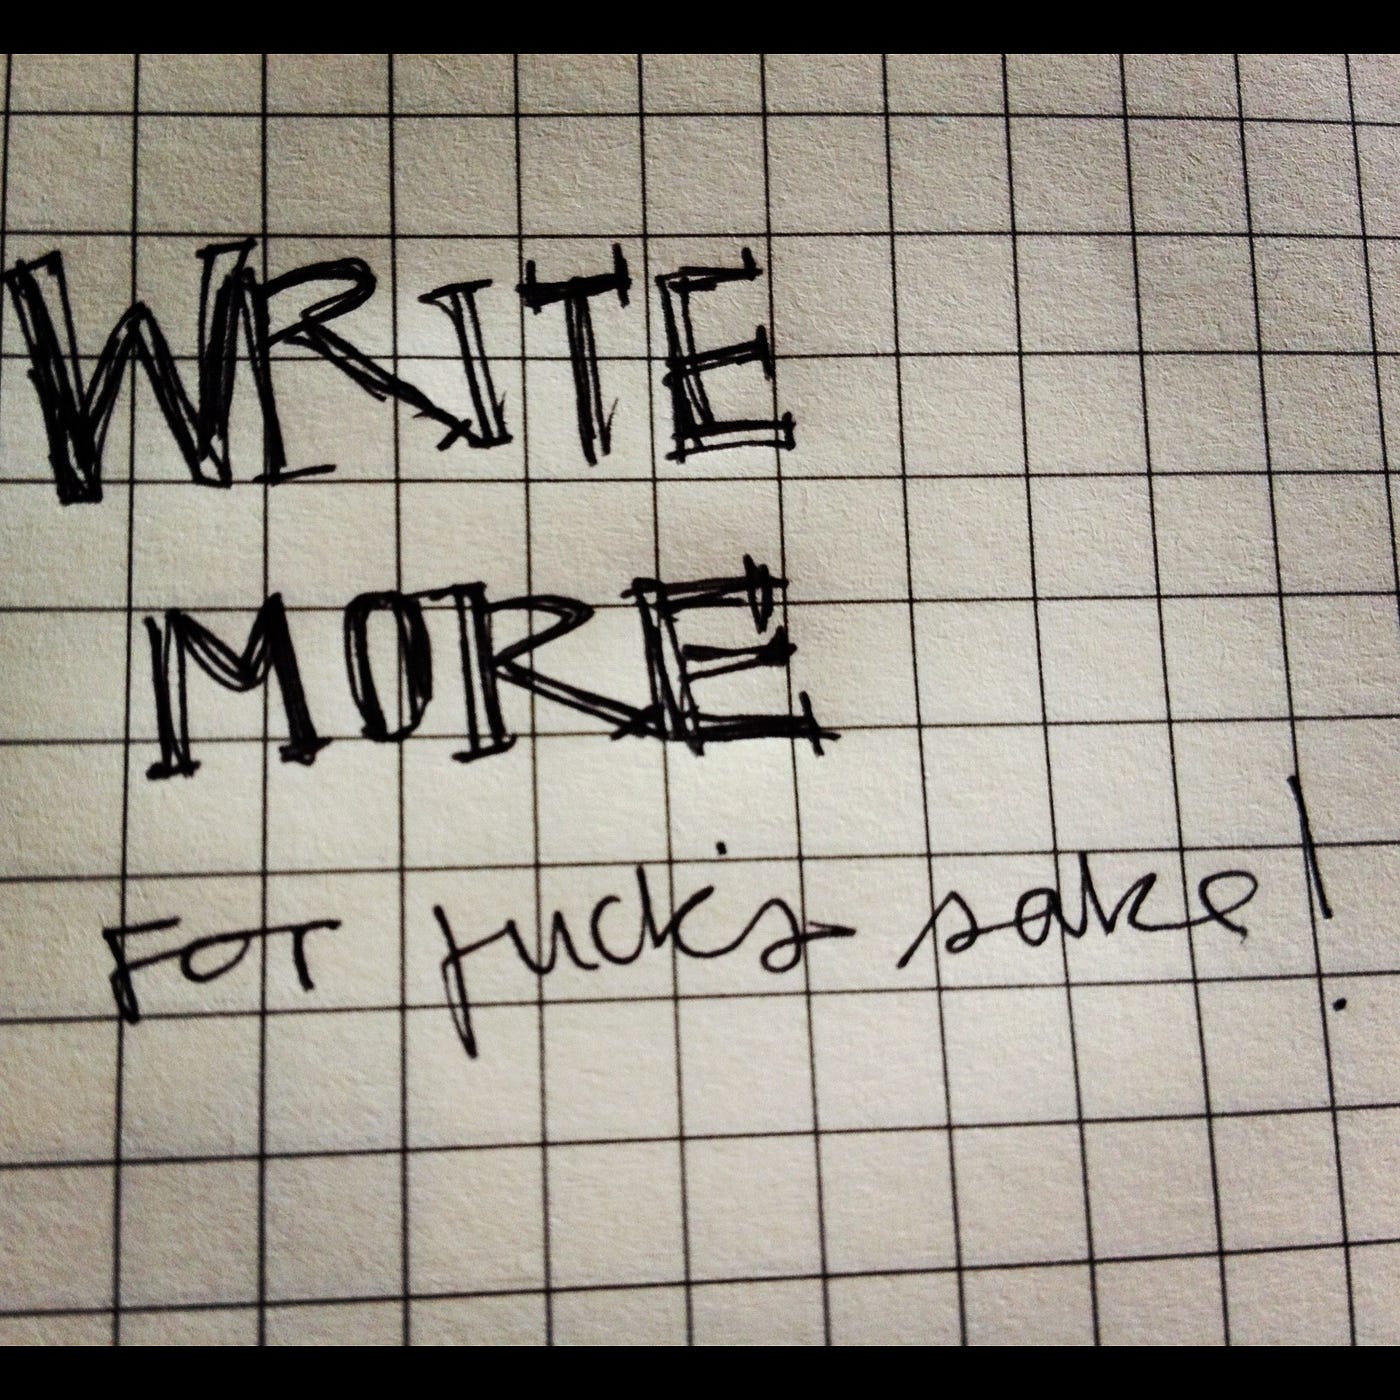 WRITE
MORE
For fuck's sake!